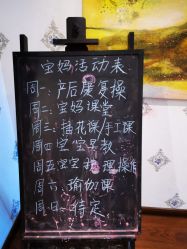 宝妈活动表
周一:产后康复操
周二:宝妈课堂
周三:插花课/手工课
周四:宝宝早教
周五:宝宝护理操作
周六:瑜伽课
周日:待定